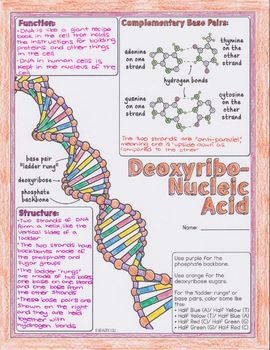 Function:
• DNA is like a giant recipe
book in the cell that holds
the instructions for building
proteins and other things
in the cell
• DNA in human cells is
kept in the nucleus of the
cell
Complementary Base Pairs:
adenine
on one
strand
thymine
on the other
strand
hydrogen bonds
guanine
on one
strand
cytosine
on the other
strand
The two strands are "anti-parallel",
meaning one is "upside down" as
compared to the other
base pair
"ladder rung"
deoxyribose
phosphate
backbone
Deoxyribo-
Nucleic
Acid
Name:
Structure:
• Two strands of DNA
form a helix, like the
vertical sides of a
ladder
• The two strands have
backbones made of
phosphate and sugar
groups
• The ladder "rungs"
are made of two bases,
one base on one strand
and one base from
the other strands
• These base pairs are
shown on the right
and they are held
together with
hydrogen bonds
Use purple for the
phosphate backbone.
Use orange for the
deoxyribose sugars.
For the "ladder rungs" or
base pairs, color some like
this:
• Half Blue (A)/ Half Yellow (T)
• Half Yellow (T)/ Half Blue (A)
• Half Red (C)/ Half Green (G)
• Half Green (G)/ Half Red (C)